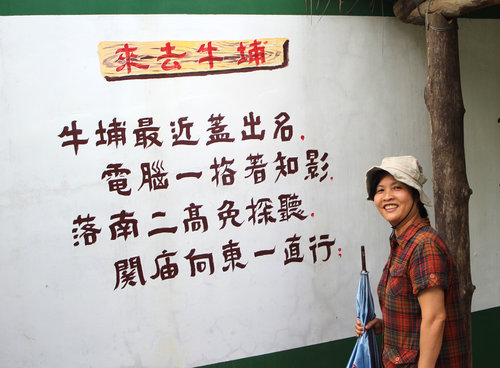 來去牛埔
牛埔最近蓋出名.
電腦一撘著知影.
落南二高免探聽.
関庙向東一直行;